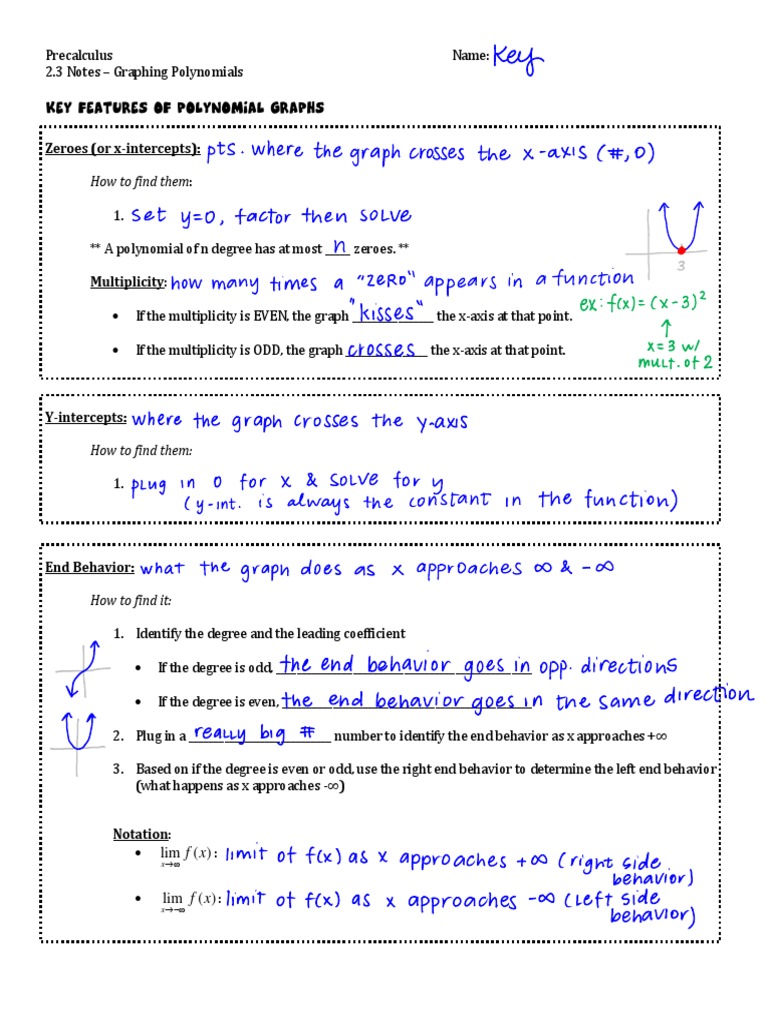 Precalculus Name: Key
2.3 Notes – Graphing Polynomials
KEY FEATURES OF POLYNOMIAL GRAPHS
Zeroes (or x-intercepts): pts. where the graph crosses the x-axis (#, 0)
How to find them:
1. Set y=0, factor then solve
** A polynomial of n degree has at most n zeroes. **
3
Multiplicity: how many times a "zero" appears in a function
• If the multiplicity is EVEN, the graph "kisses" the x-axis at that point.
ex: f(x) = (x-3)²
↑
• If the multiplicity is ODD, the graph crosses the x-axis at that point.
x=3 w/
mult. of 2
Y-intercepts: where the graph crosses the y-axis
How to find them:
1. plug in 0 for x & solve for y
(y-int. is always the constant in the function)
End Behavior: what the graph does as x approaches ∞ & -∞
How to find it:
1. Identify the degree and the leading coefficient
• If the degree is odd, the end behavior goes in opp. directions
• If the degree is even, the end behavior goes in the same direction
2. Plug in a really big # number to identify the end behavior as x approaches +∞
3. Based on if the degree is even or odd, use the right end behavior to determine the left end behavior
(what happens as x approaches -∞)
Notation:
• lim x→∞ f(x): limit of f(x) as x approaches +∞ (right side
behavior)
• lim x→-∞ f(x): limit of f(x) as x approaches -∞ (left side
behavior)